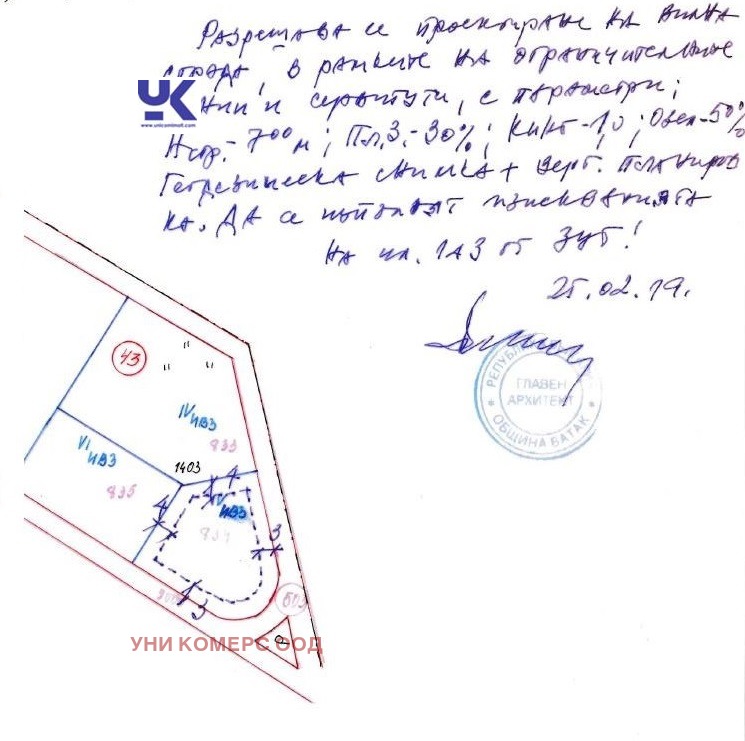 Разрешава се проектиране на вилна
сграда, в рамките на ограничителните
линии и сервитути, с параметри:
UK
www.unicominvest.com
Нстр.- 7⁰⁰ м; Пл.З.-30%; Кинт-1,0; Озел-50%
Геодезическа снимка + верт. планиров
ка. Да се изпълнят изискванията
на чл. 143 от ЗУТ!
25.02.19.
РЕПУБЛИКА
ГЛАВЕН
АРХИТЕКТ
ОБЩИНА БАТАК
43
IV ИВЗ
833
VI
ИВЗ
835
1403
4
4
V
ИВЗ
834
3
3
603
УНИ КОМЕРС ООД